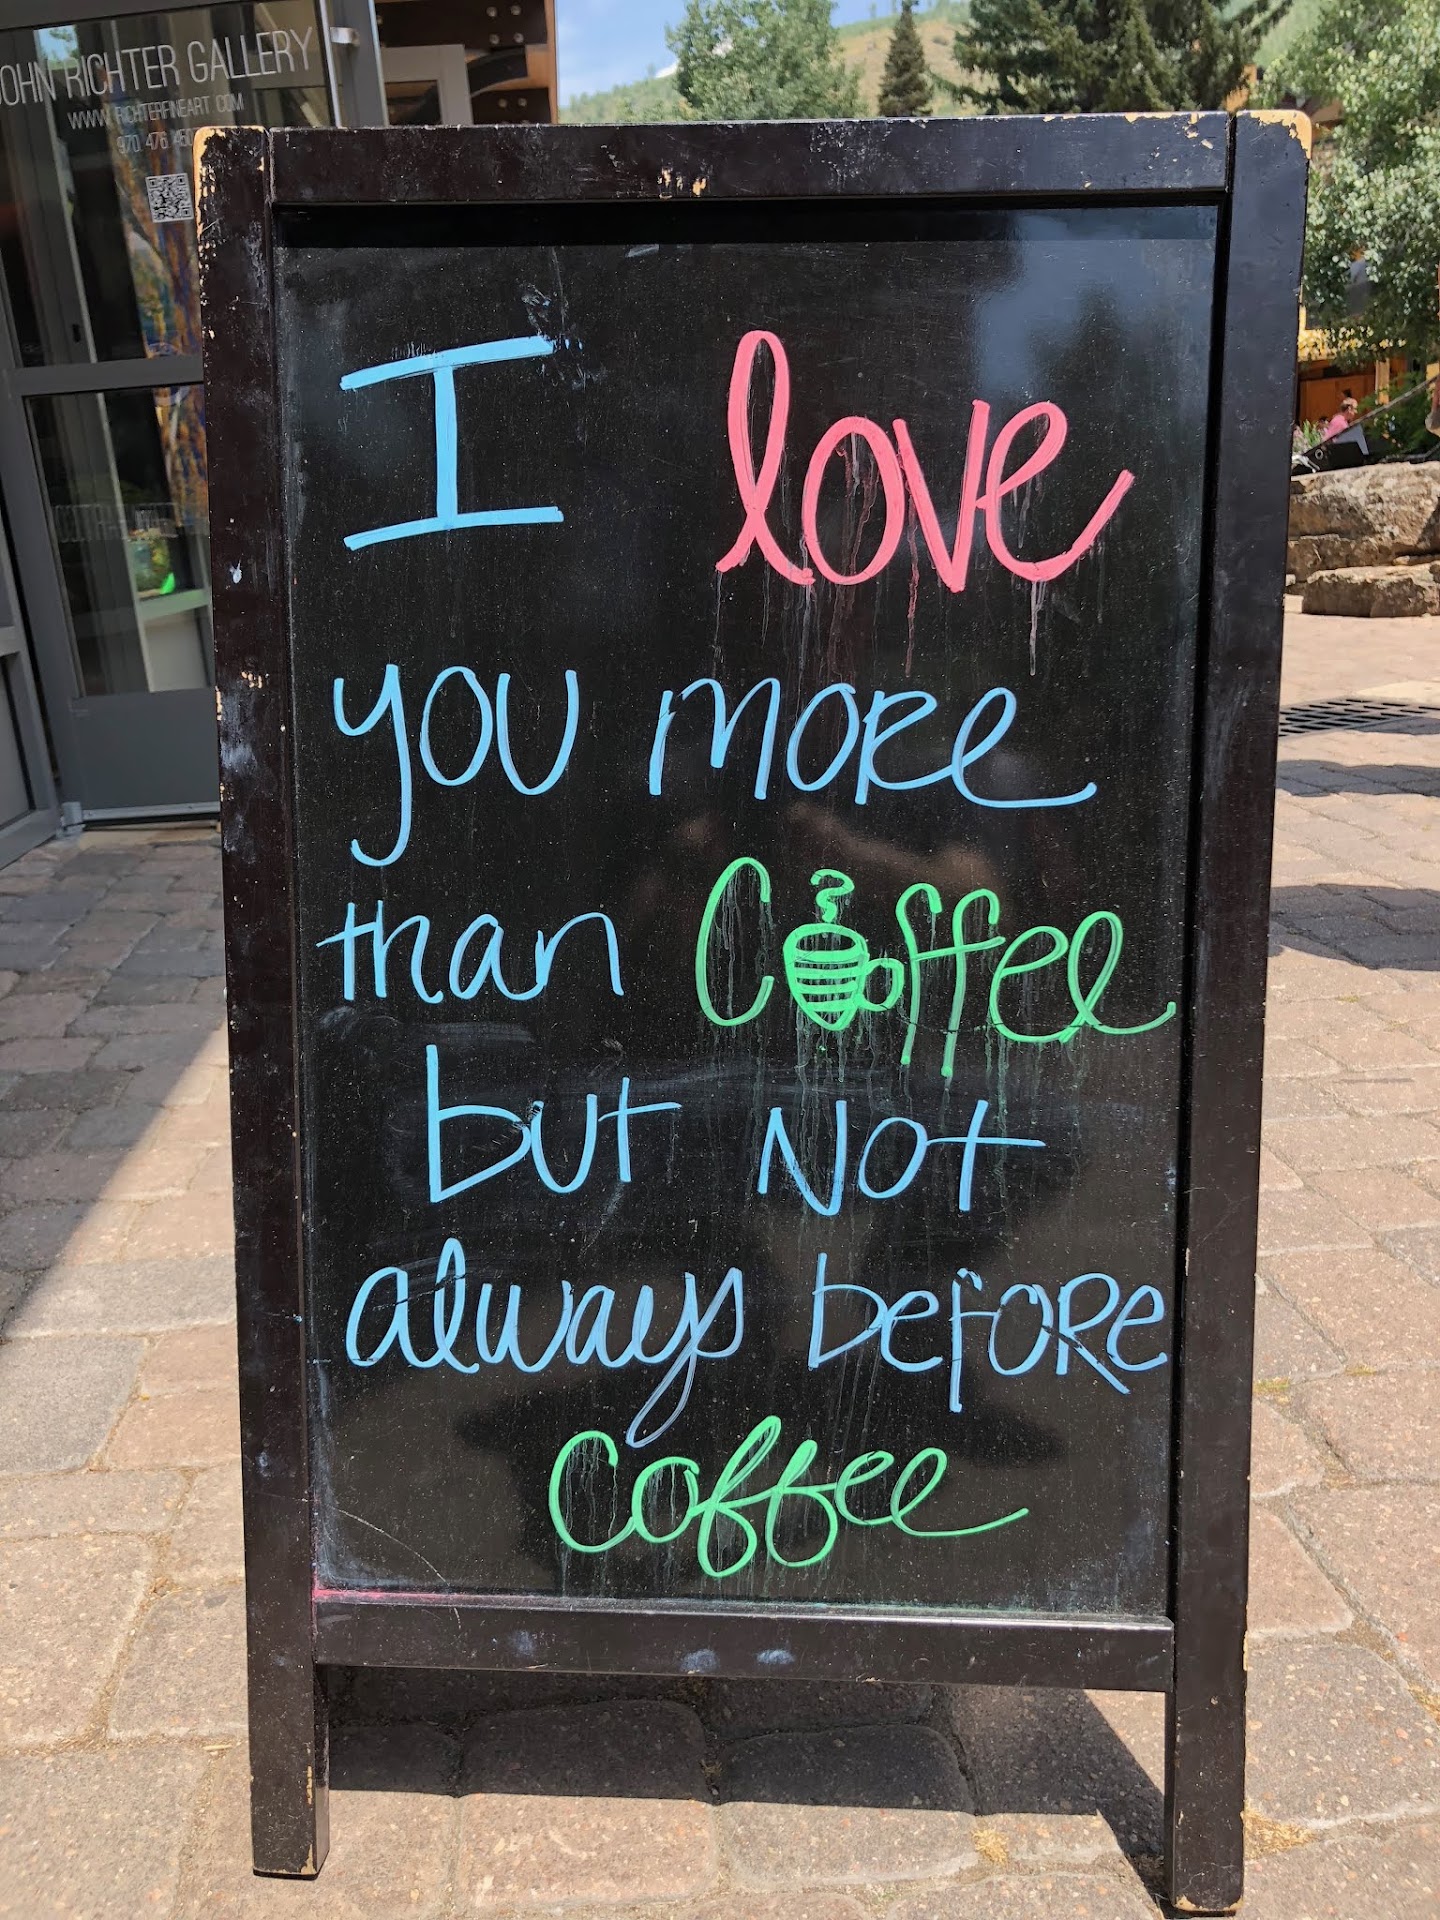 JOHN RICHTER GALLERY
WWW.RICHTERFINEART.COM
970 476
I love
you more
than Coffee
but Not
always before
Coffee